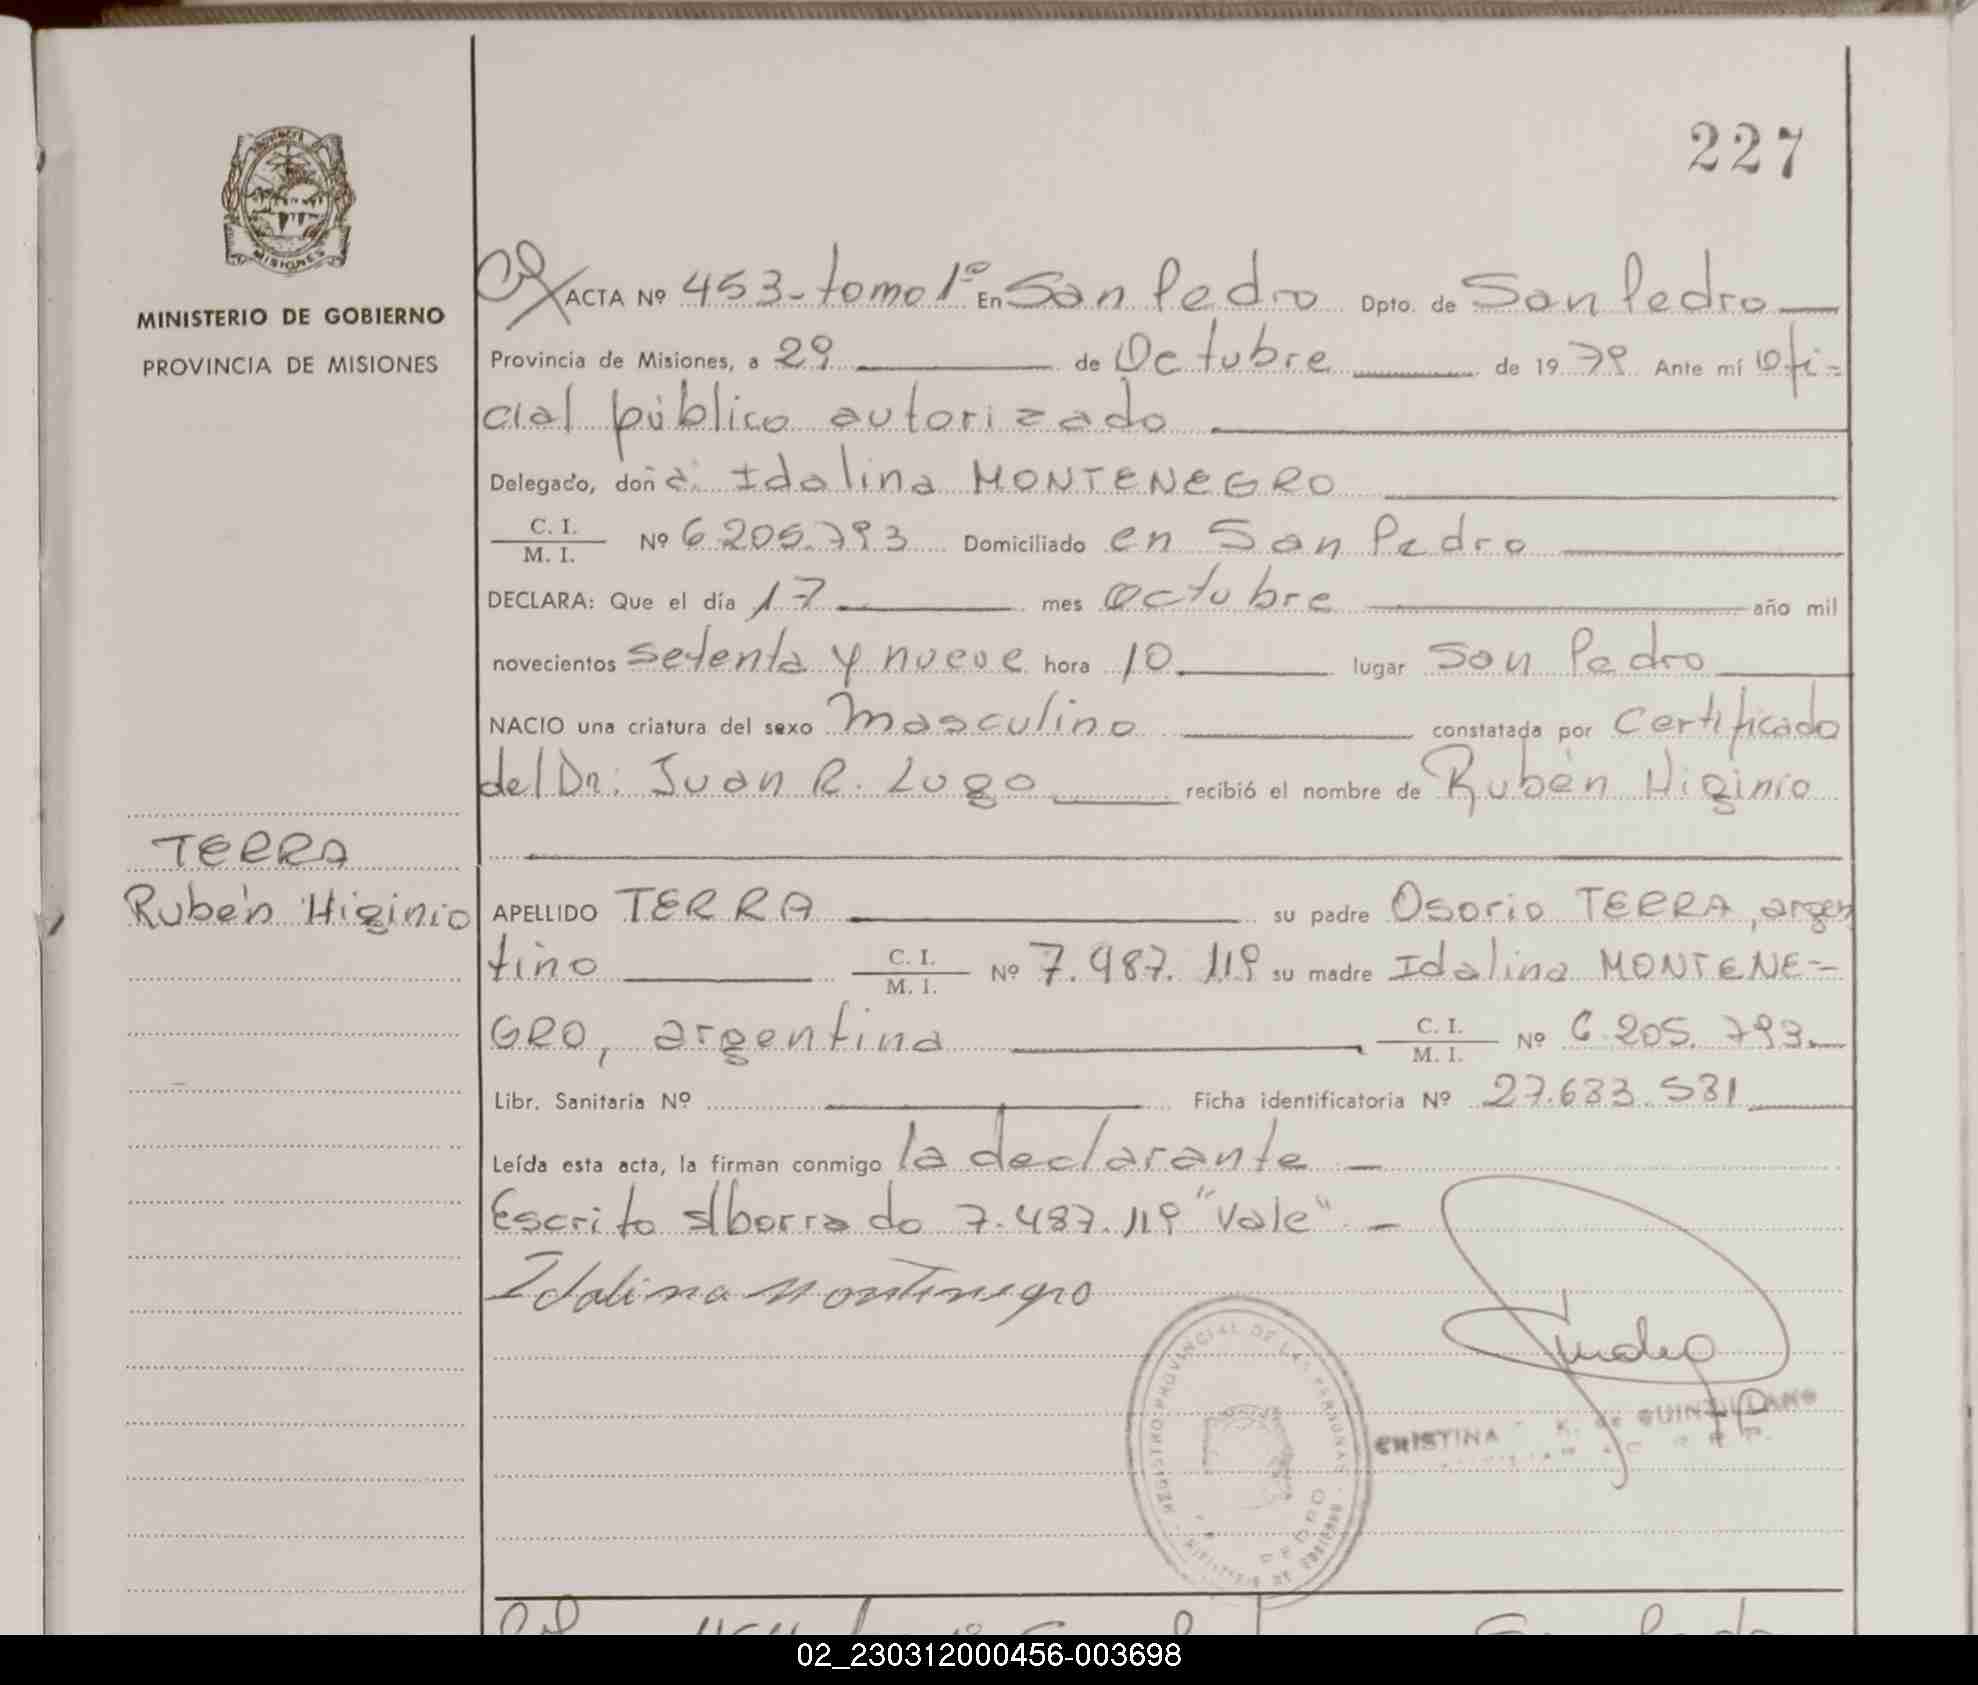 227
MISIONES
MINISTERIO DE GOBIERNO
PROVINCIA DE MISIONES
ACTA Nº 453-tomo 1º En San Pedro Dpto. de San Pedro
Provincia de Misiones, a 29 de Octubre de 1979 Ante mí Ofi-
cial público autorizado
Delegado, doña Idalina MONTENEGRO
C. I. / M. I. Nº 6.205.793 Domiciliado en San Pedro
DECLARA: Que el día 17 mes octubre año mil
novecientos setenta y nueve hora 10 lugar San Pedro
NACIO una criatura del sexo masculino constatada por Certificado
del Dr: Juan R. Lugo recibió el nombre de Rubén Higinio
TERRA
Rubén Higinio
APELLIDO TERRA su padre Osorio TERRA, argen
tino C. I. / M. I. Nº 7.487.119 su madre Idalina MONTENE-
GRO, argentina C. I. / M. I. Nº 6.205.793.
Libr. Sanitaria Nº Ficha identificatoria Nº 27.633.531
Leída esta acta, la firman conmigo la declarante -
Escrito s/borrado 7.487.119 "Vale" -
Idalina Montenegro
REGISTRO PROVINCIAL DE LAS PERSONAS
PEDRO
CRISTINA K. de QUINTILLANO
02_230312000456-003698